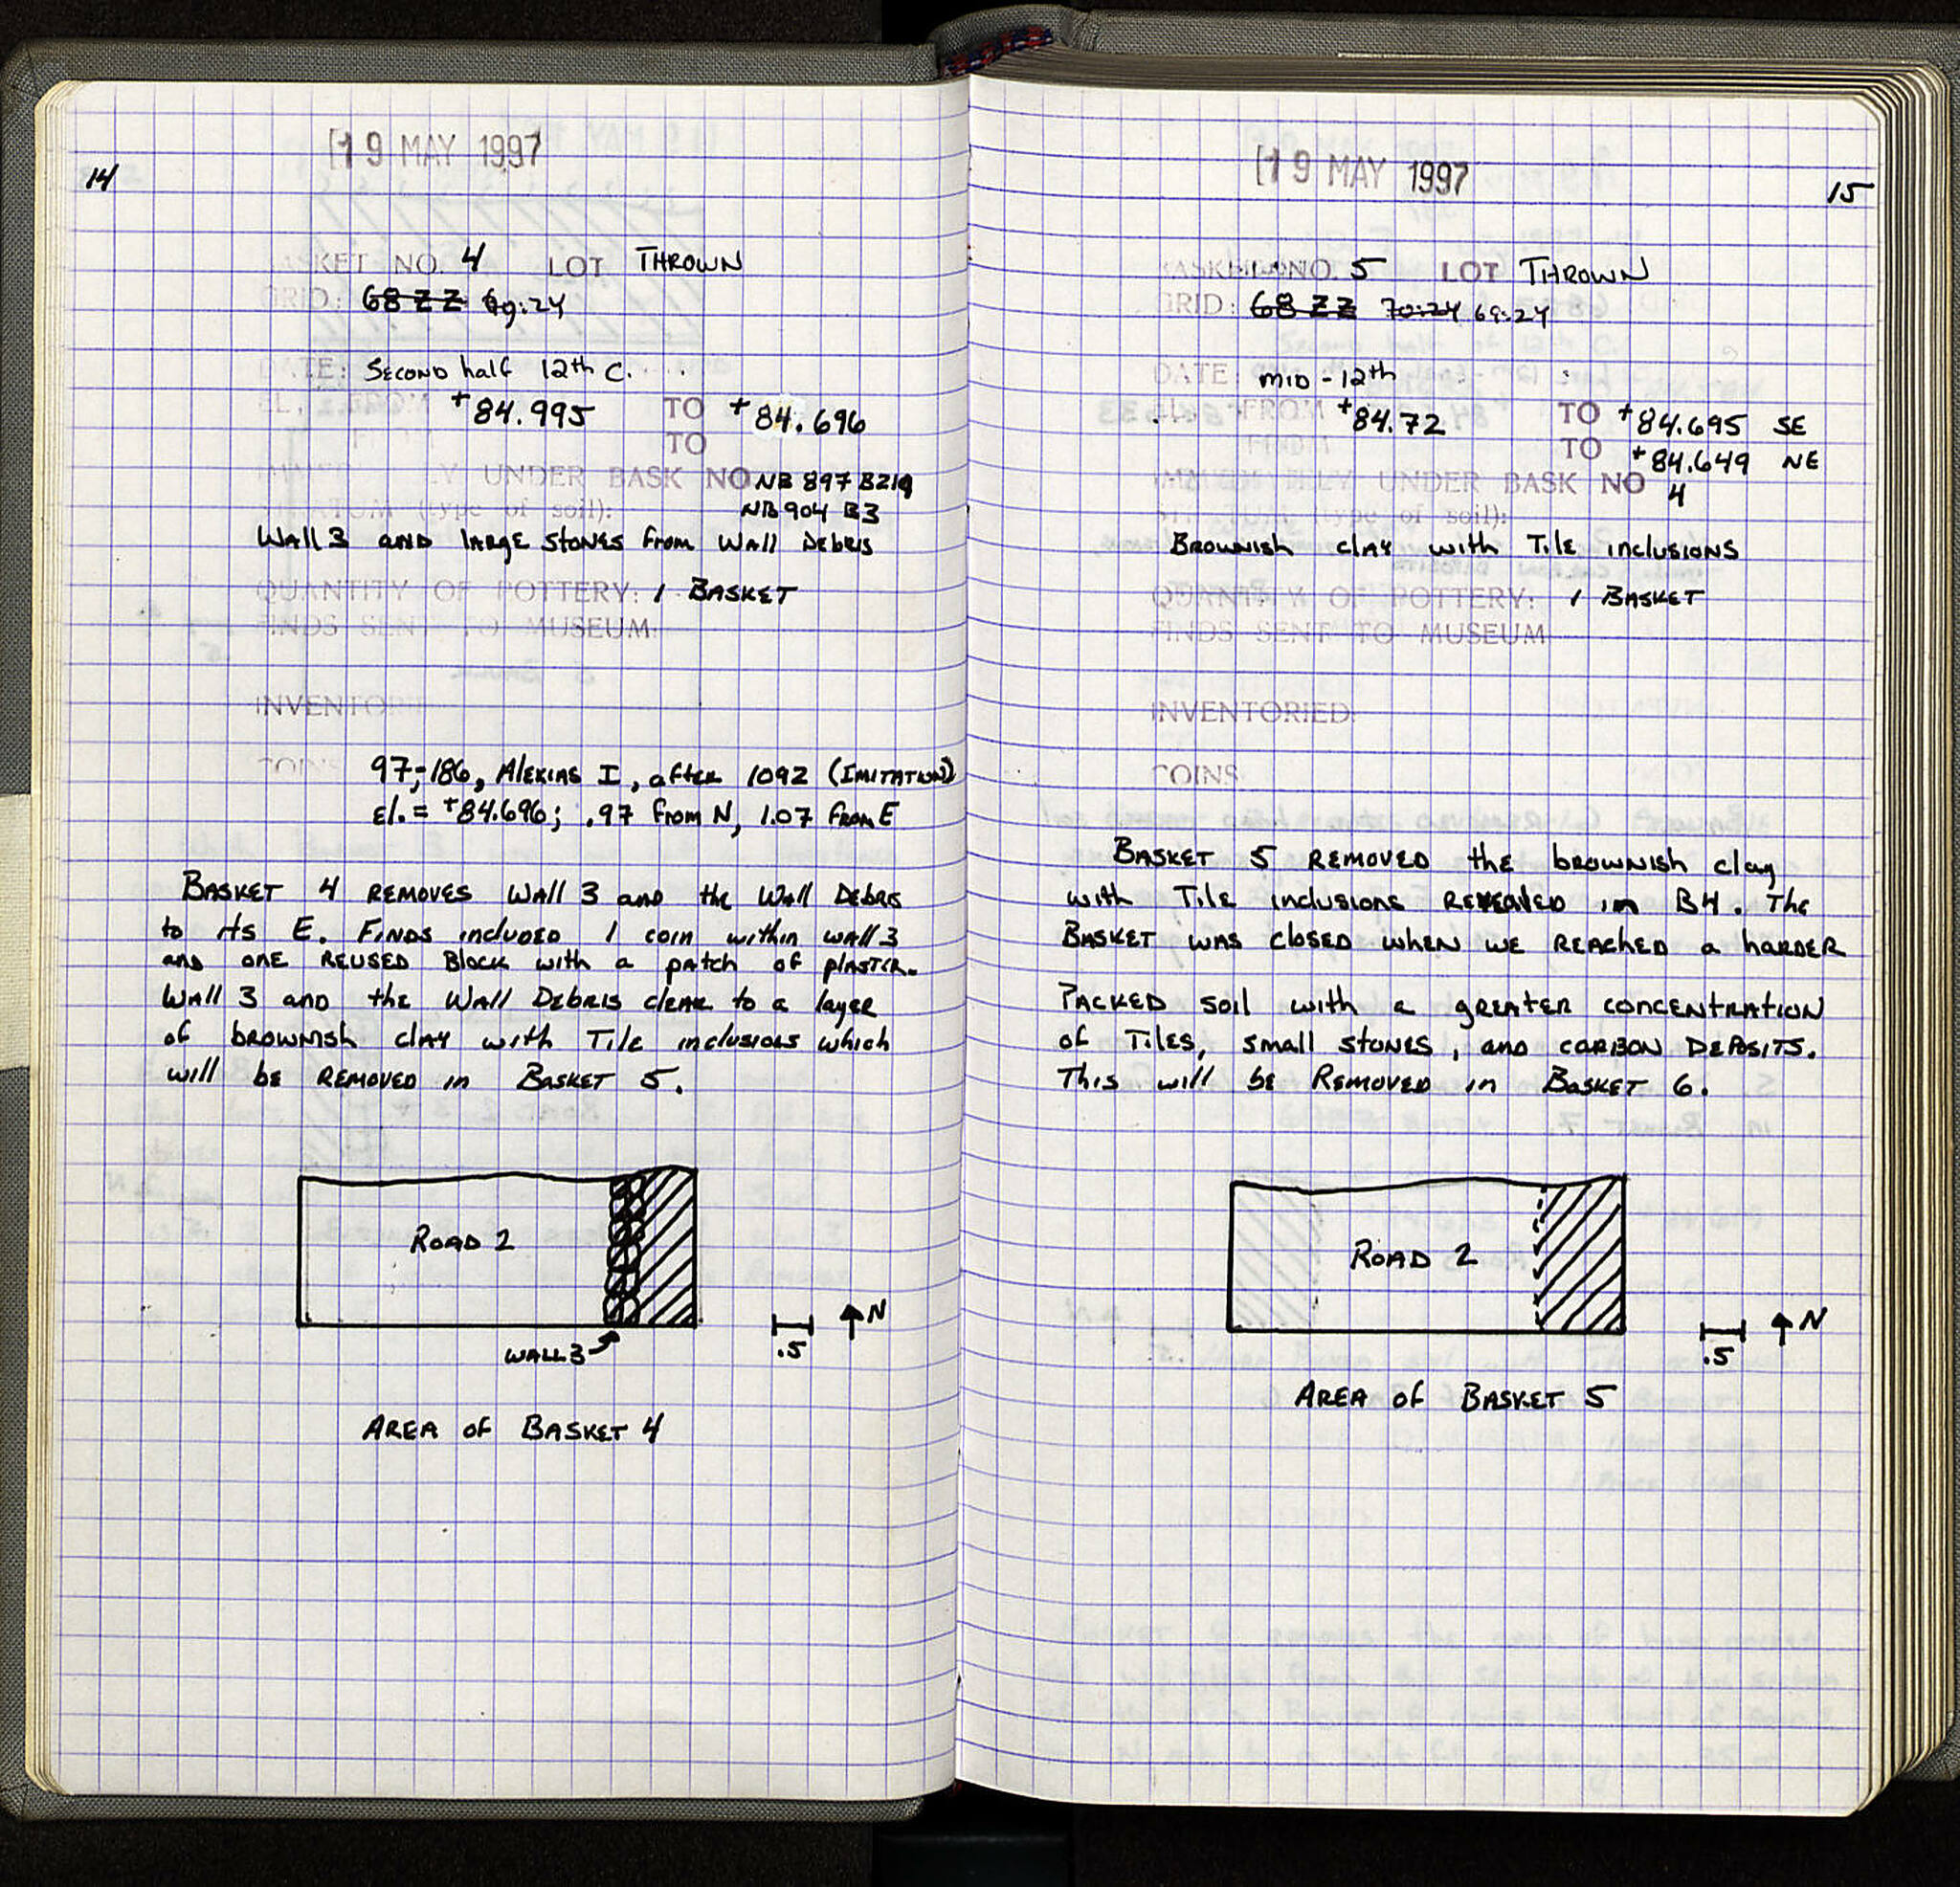 14
19 MAY 1997
BASKET NO. 4 LOT THROWN
GRID: 68 ZZ 69:24
DATE: Second half 12th C.
EL. FROM +84.995 TO +84.696
TO
UNDER BASK NO NB 897 B219
NB 904 B3
STRATUM (type of soil):
Wall 3 and large stones from Wall Debris
QUANTITY OF POTTERY: 1 BASKET
FINDS SENT TO MUSEUM:
INVENTORIED
COINS 97-186, Alexias I, after 1092 (Imitation)
El. = +84.696; .97 from N, 1.07 from E
BASKET 4 REMOVES Wall 3 and the Wall Debris
to its E. Finds included 1 coin within wall 3
and one reused block with a patch of plaster.
Wall 3 and the Wall Debris clear to a layer
of brownish clay with Tile inclusions which
will be REMOVED in BASKET 5.
ROAD 2
WALL 3
.5
N
AREA of BASKET 4
19 MAY 1997
15
BASKET NO. 5 LOT THROWN
GRID: 68 ZZ 70:24 69:24
DATE: mid-12th
EL. FROM +84.72 TO +84.695 SE
FROM TO +84.649 NE
IMMEDIATELY UNDER BASK NO 4
STRATUM (type of soil):
Brownish clay with Tile inclusions
QUANTITY OF POTTERY: 1 BASKET
FINDS SENT TO MUSEUM
INVENTORIED:
COINS:
BASKET 5 REMOVED the brownish clay
with Tile inclusions revealed in B4. The
BASKET was closed when we reached a harder
packed soil with a greater concentration
of Tiles, small stones, and carbon deposits.
This will be Removed in Basket 6.
ROAD 2
.5
N
AREA of BASKET 5